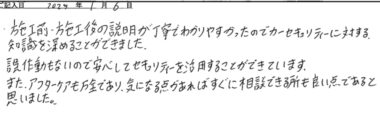 ご記入日 2024年1月6日
・施工前・施工後の説明が丁寧でわかりやすかったのでカーセキュリティーに対する
知識を深めることができました。
誤作動もないので安心してセキュリティーを活用することができています。
また、アフターケアも万全であり、気になる点があればすぐに相談できる所も良い点であると
思いました。